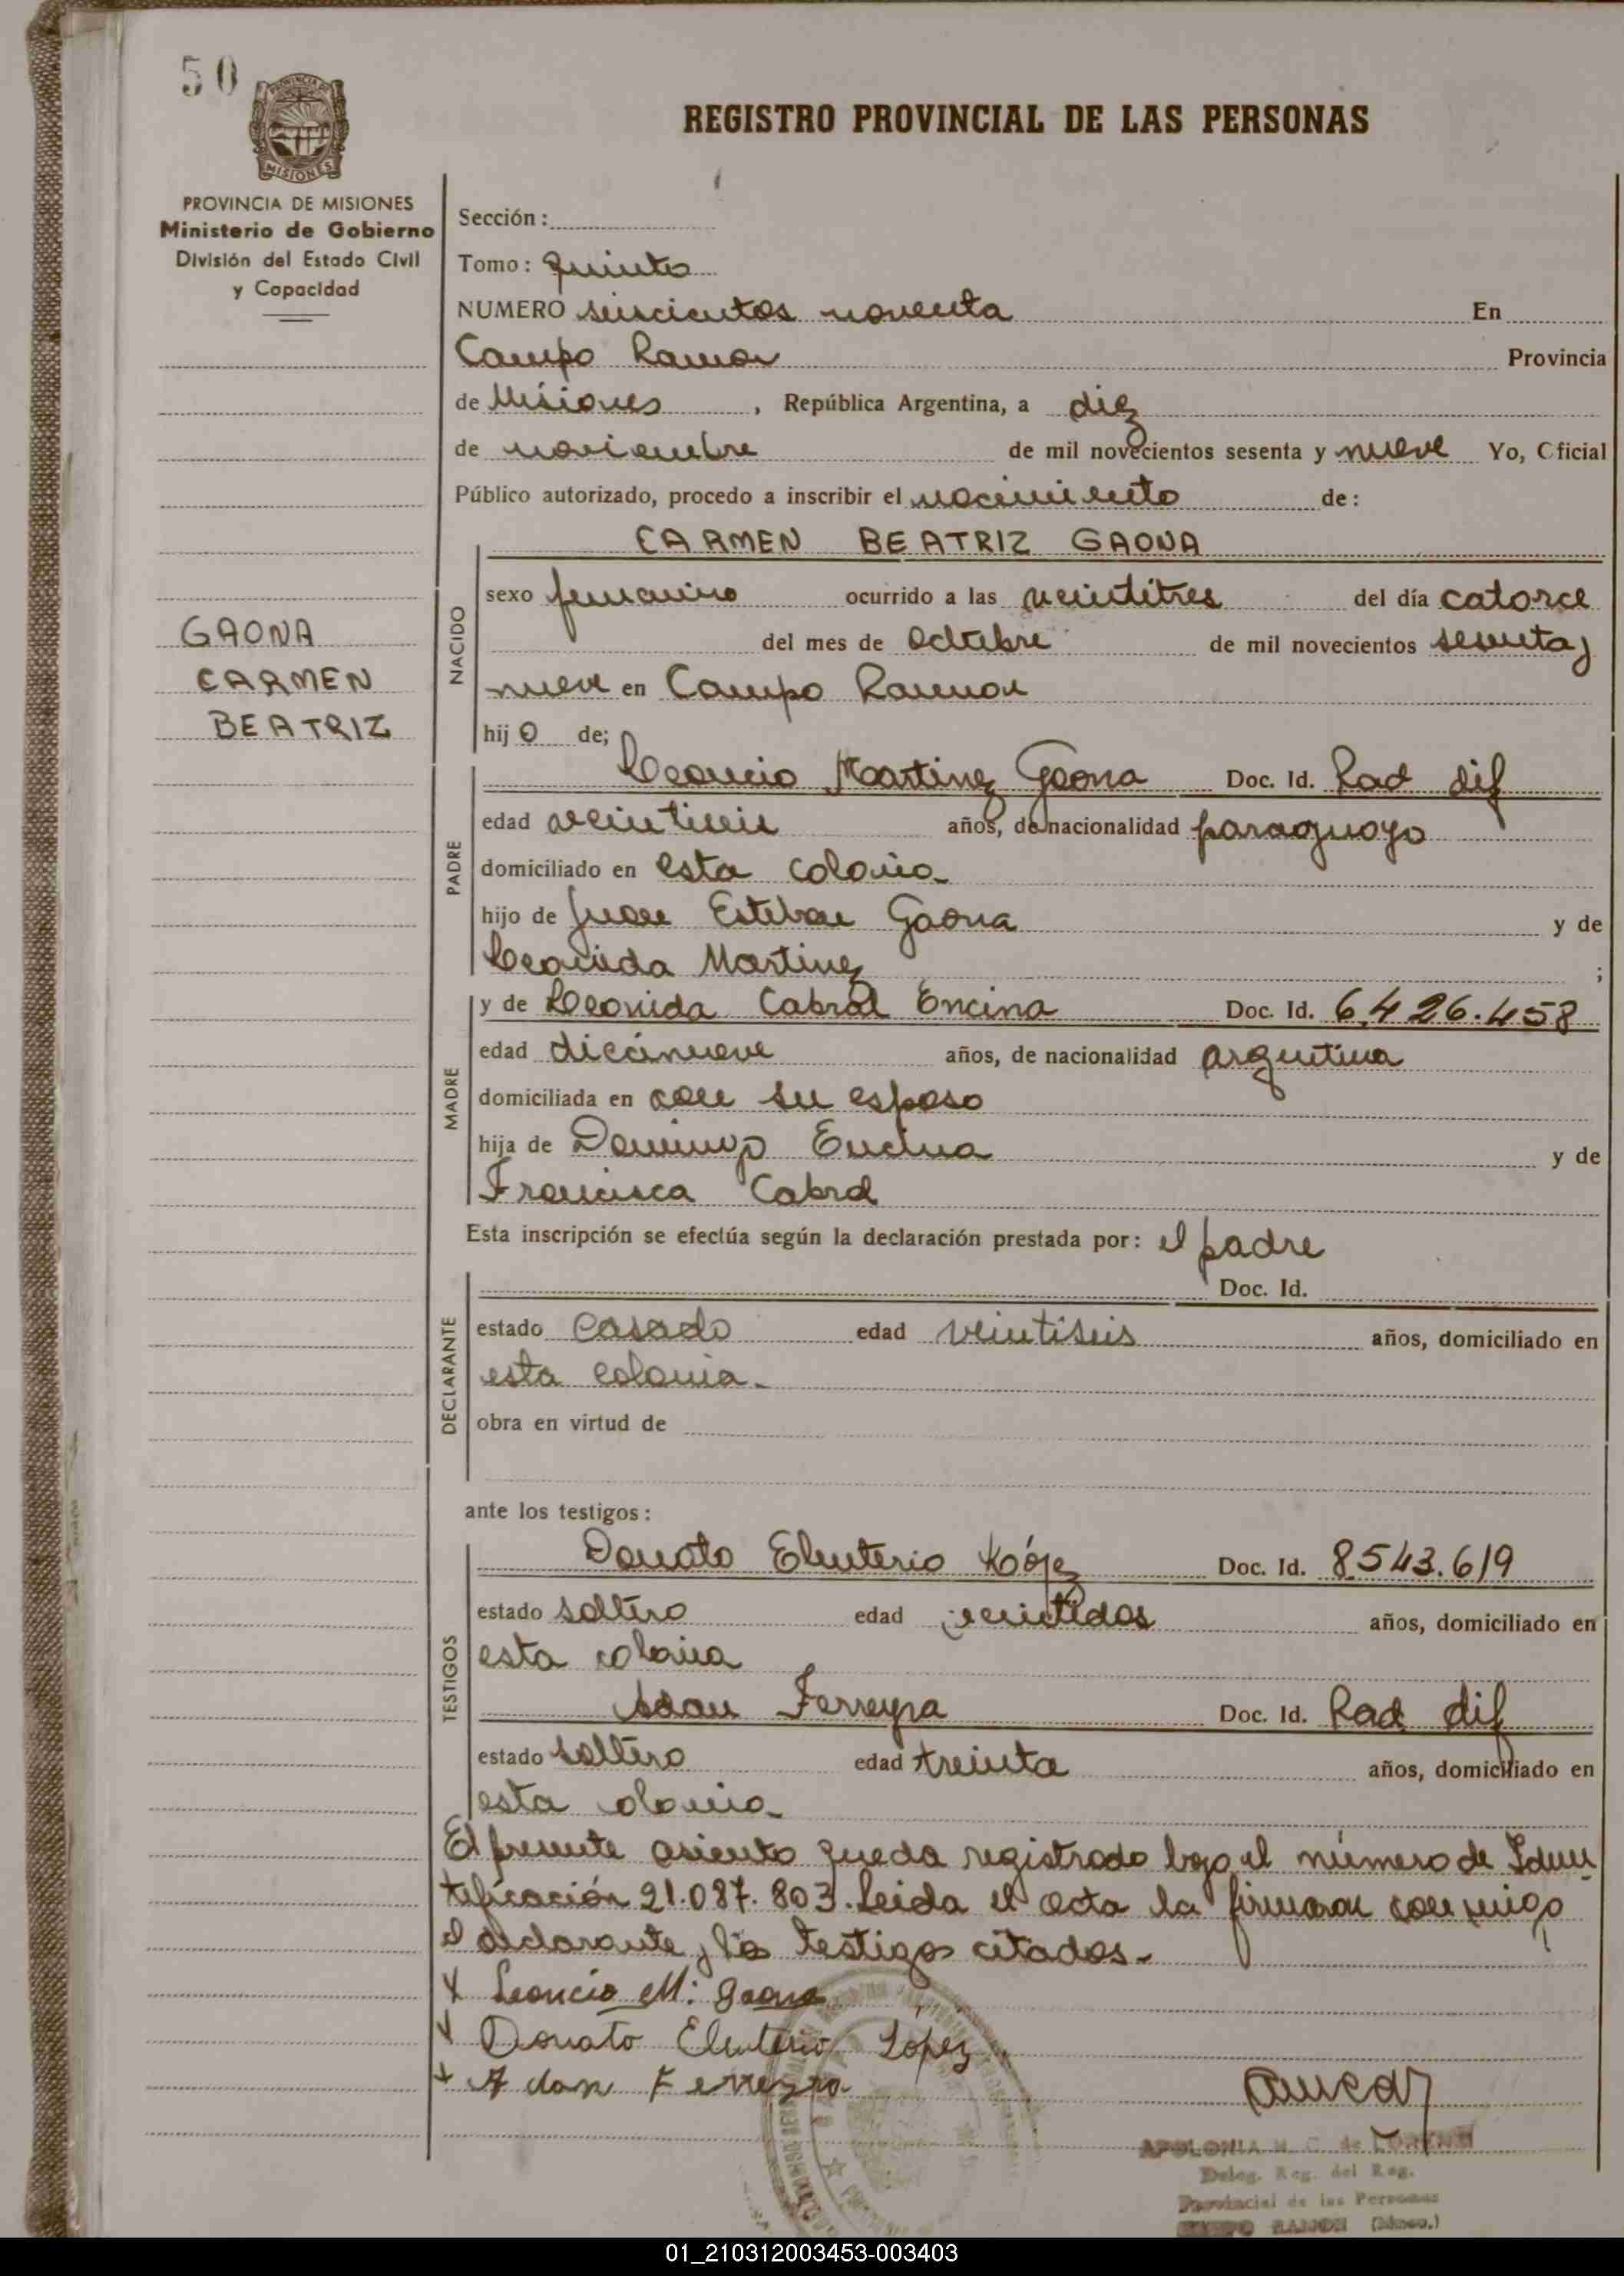 50
PROVINCIA DE
MISIONES
REGISTRO PROVINCIAL DE LAS PERSONAS
PROVINCIA DE MISIONES
Ministerio de Gobierno
División del Estado Civil
y Capacidad
Sección:
Tomo: quinto
NUMERO seiscientos noventa En
Campo Ramon Provincia
de Misiones, República Argentina, a diez
de noviembre de mil novecientos sesenta y nueve Yo, Oficial
Público autorizado, procedo a inscribir el nacimiento de:
CARMEN BEATRIZ GAONA
GAONA
CARMEN
BEATRIZ
NACIDO
sexo femenino ocurrido a las veintitres del día catorce
del mes de Octubre de mil novecientos sesenta y
nueve en Campo Ramon
hij o de;
PADRE
Leoncio Martinez Gaona Doc. Id. Rad dif
edad veintiseis años, de nacionalidad paraguayo
domiciliado en esta colonia
hijo de Juan Esteban Gaona y de
Leonida Martinez ;
MADRE
y de Leonida Cabral Encina Doc. Id. 6.426.458
edad diecinueve años, de nacionalidad argentina
domiciliada en con su esposo
hija de Domingo Encina y de
Francisca Cabral
Esta inscripción se efectúa según la declaración prestada por: el padre
DECLARANTE
Doc. Id.
estado casado edad veintiseis años, domiciliado en
esta colonia.
obra en virtud de
ante los testigos:
TESTIGOS
Donato Eleuterio López Doc. Id. 8.543.619
estado soltero edad veintidos años, domiciliado en
esta colonia
Adan Ferreyra Doc. Id. Rad dif
estado soltero edad treinta años, domiciliado en
esta colonia
El presente asiento queda registrado bajo el número de Iden
tificación 21.087.803. Leida el acta la firman conmigo
el declarante y los testigos citados.
x Leoncio M. Gaona
x Donato Eleuterio López
x Adan Ferreyra
APOLONIA M. C. de
Deleg. Reg. del Reg.
Provincial de las Personas
CAMPO RAMON (Mnes.)
01_210312003453-003403